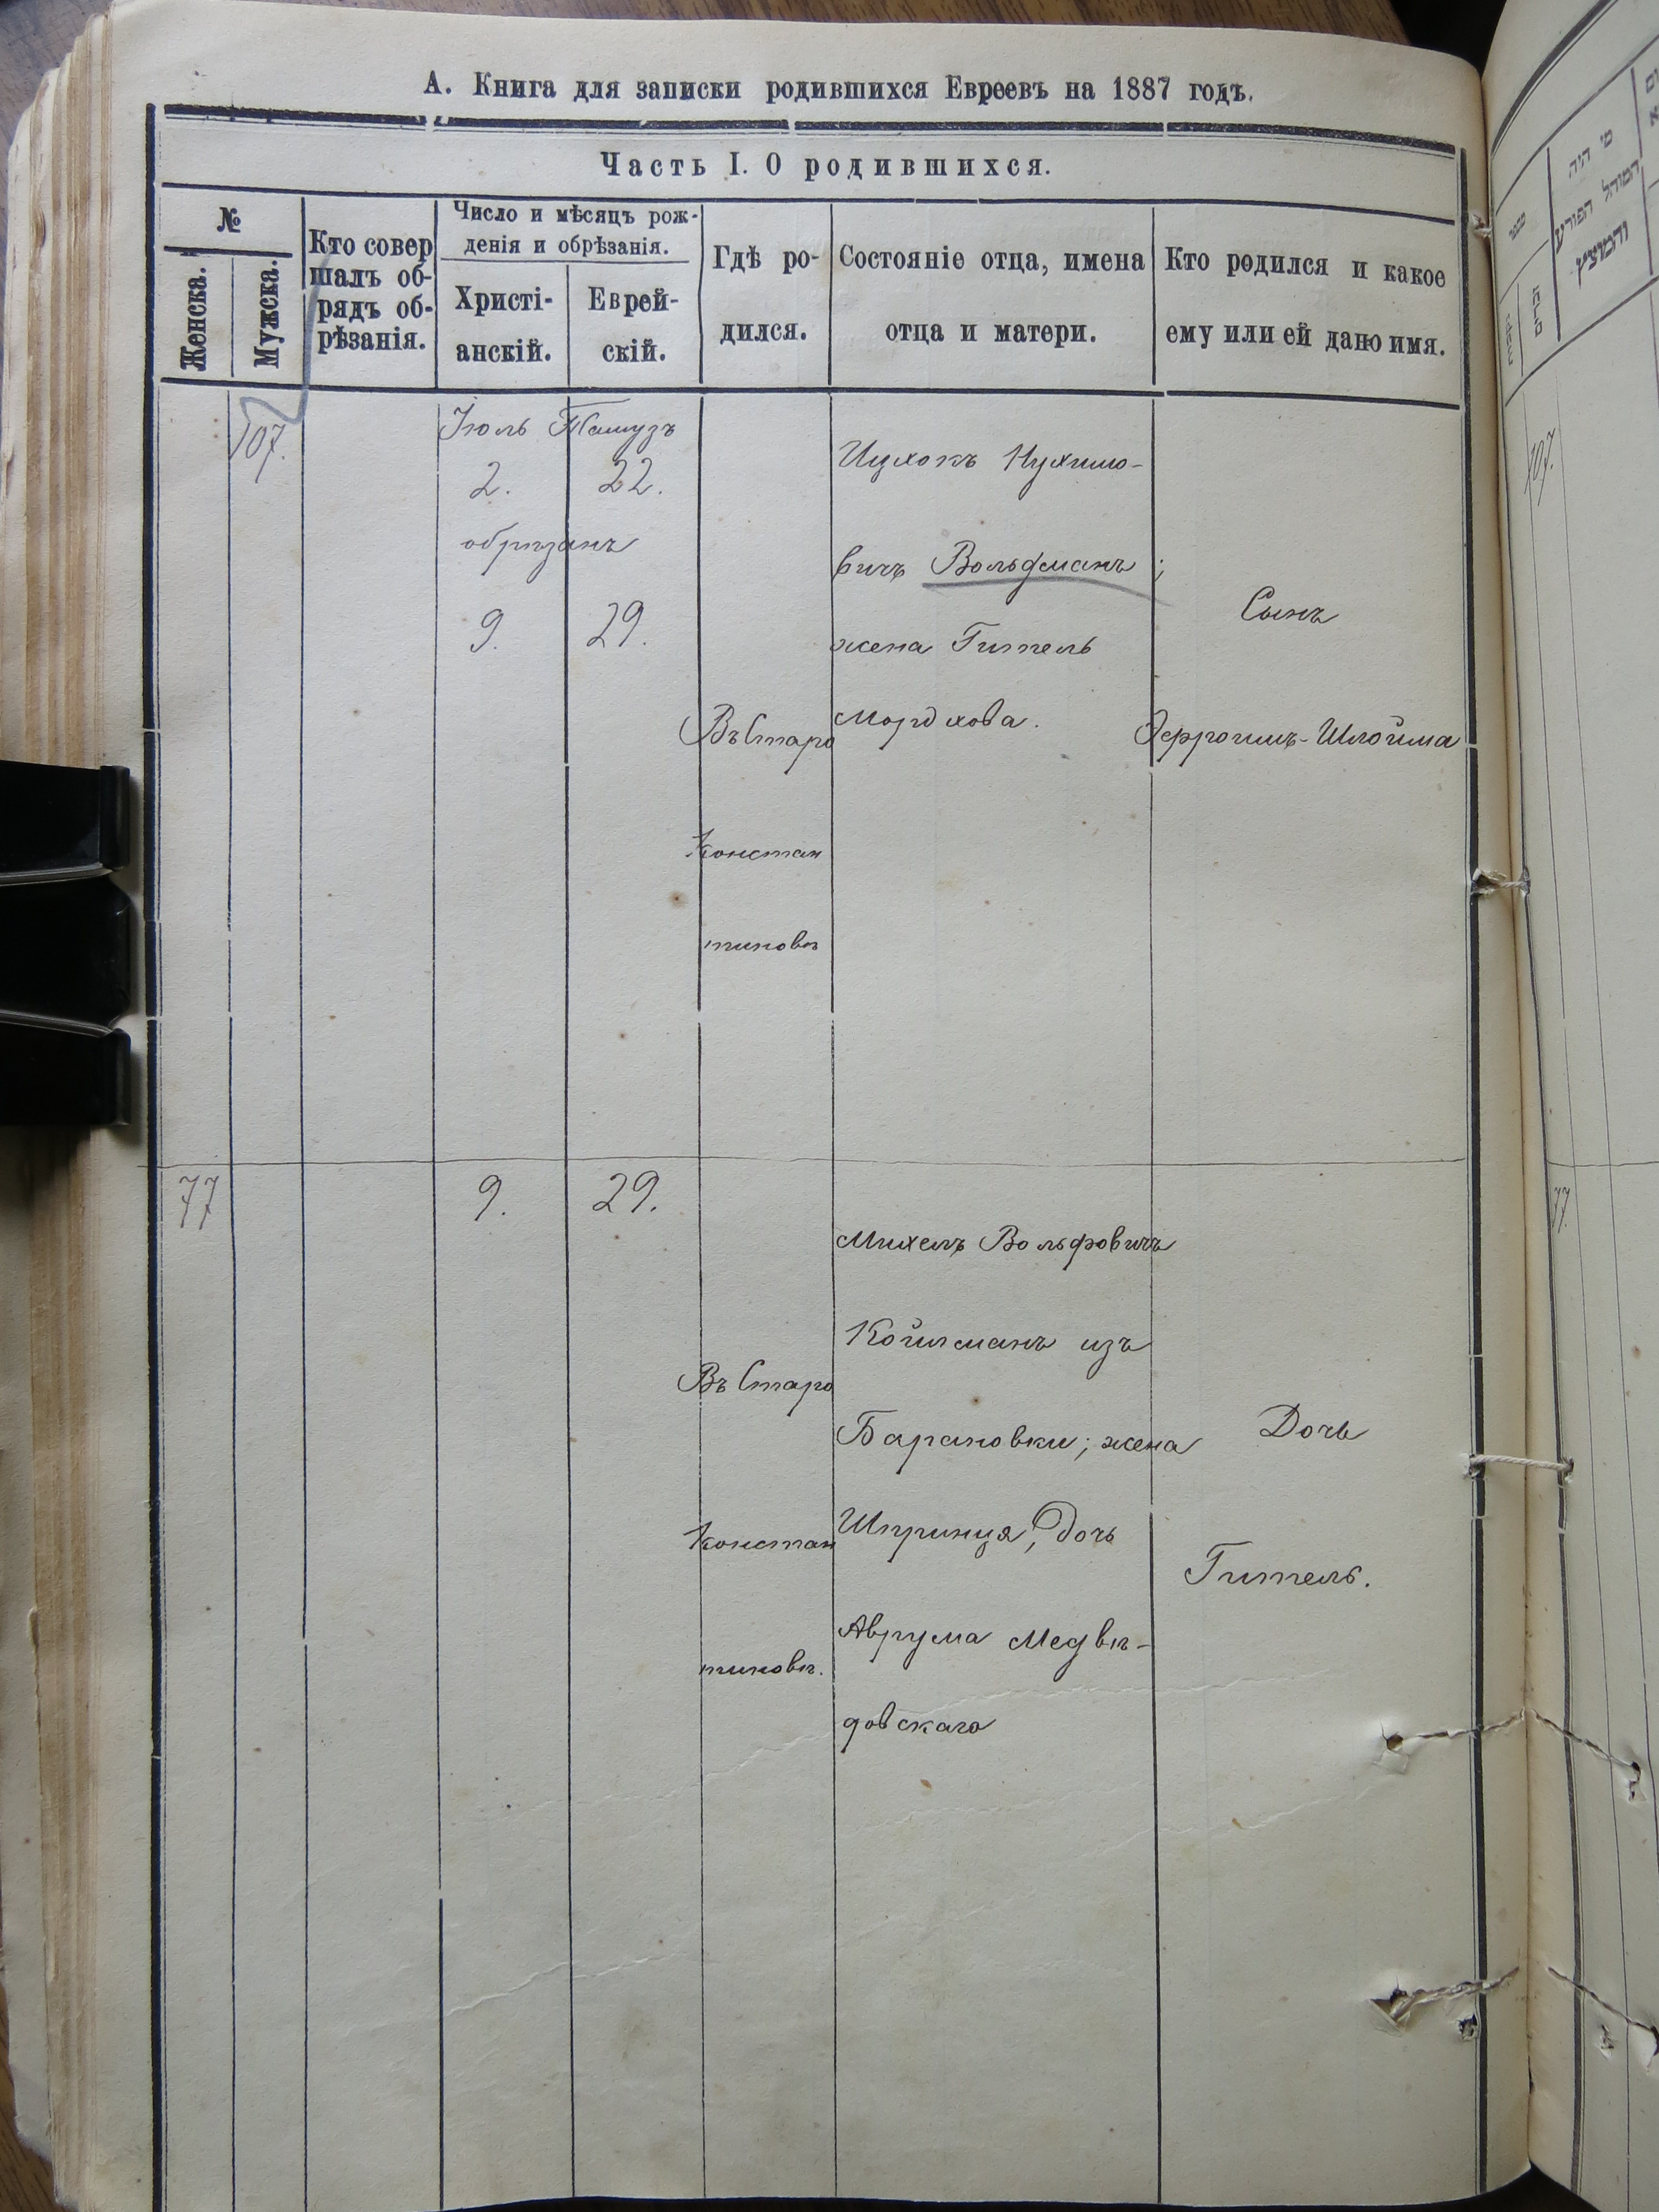 А. Книга для записки родившихся Евреевъ на 1887 годъ.
Часть I. О родившихся.
№
Женска.
Мужска.
Кто совер
шалъ об-
рядъ об-
рѣзанія.
Число и мѣсяцъ рож-
денія и обрѣзанія.
Христі-
анскій.
Еврей-
скій.
Гдѣ ро-
дился.
Состояніе отца, имена
отца и матери.
Кто родился и какое
ему или ей дано имя.
107.
Іюль Тамузъ
2. 22.
обрѣзанъ
9. 29.
Въ Старо
Констан
тиновѣ
Ицхокъ Нухимо-
вичъ Вольфманъ;
жена Гитель
Мордхова.
Сынъ
Эфроимъ-Шлойма
77
9. 29.
Въ Старо
Констан
тиновѣ.
Михель Вольфовичъ
Койлманъ изъ
Барановки; жена
Шпринця, дочь
Аврума Медвѣ-
довскаго
Дочь
Гитель.
מי היה
המוהל הפורע
והמוצץ
107.
77.